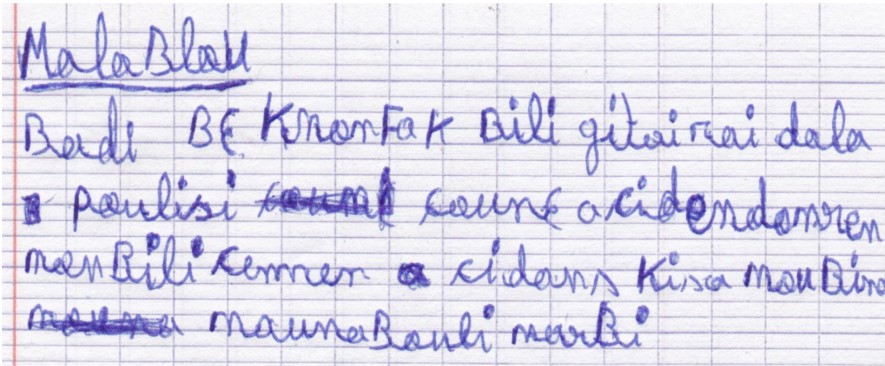 MalaBlau
Badi BE KnonFak Bili gitairai dala
poulisi counE acidendonren
manBili cennen a cidans Kisa mouBin
maunaBouli marBi